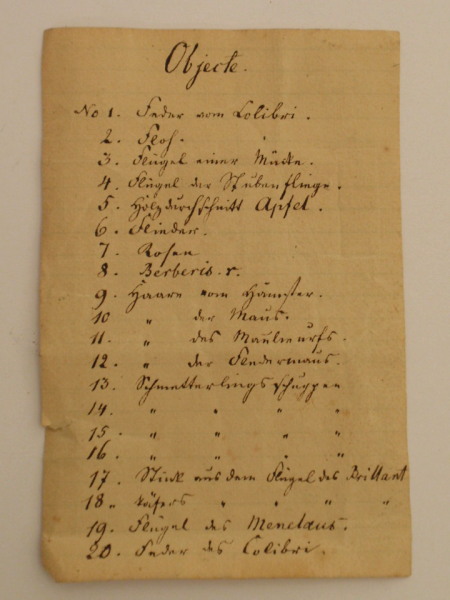 Objecte.
No 1. Feder vom Colibri.
2. Floh.
3. Flügel einer Mücke.
4. Flügel der Stubenfliege.
5. Holzdurchschnitt Apfel.
6. Flieder.
7. Rosen
8. Berberis. v.
9. Haare vom Hamster.
10 " der Maus.
11. " des Maulwurfs.
12. " der Fledermaus.
13. Schmetterlingsschuppen
14. " " " "
15. " " " "
16. " " " "
17. Stück aus dem Flügel des Brillant
18 " Käfers " " " "
19. Flügel des Menelaus.
20. Feder des Colibri.